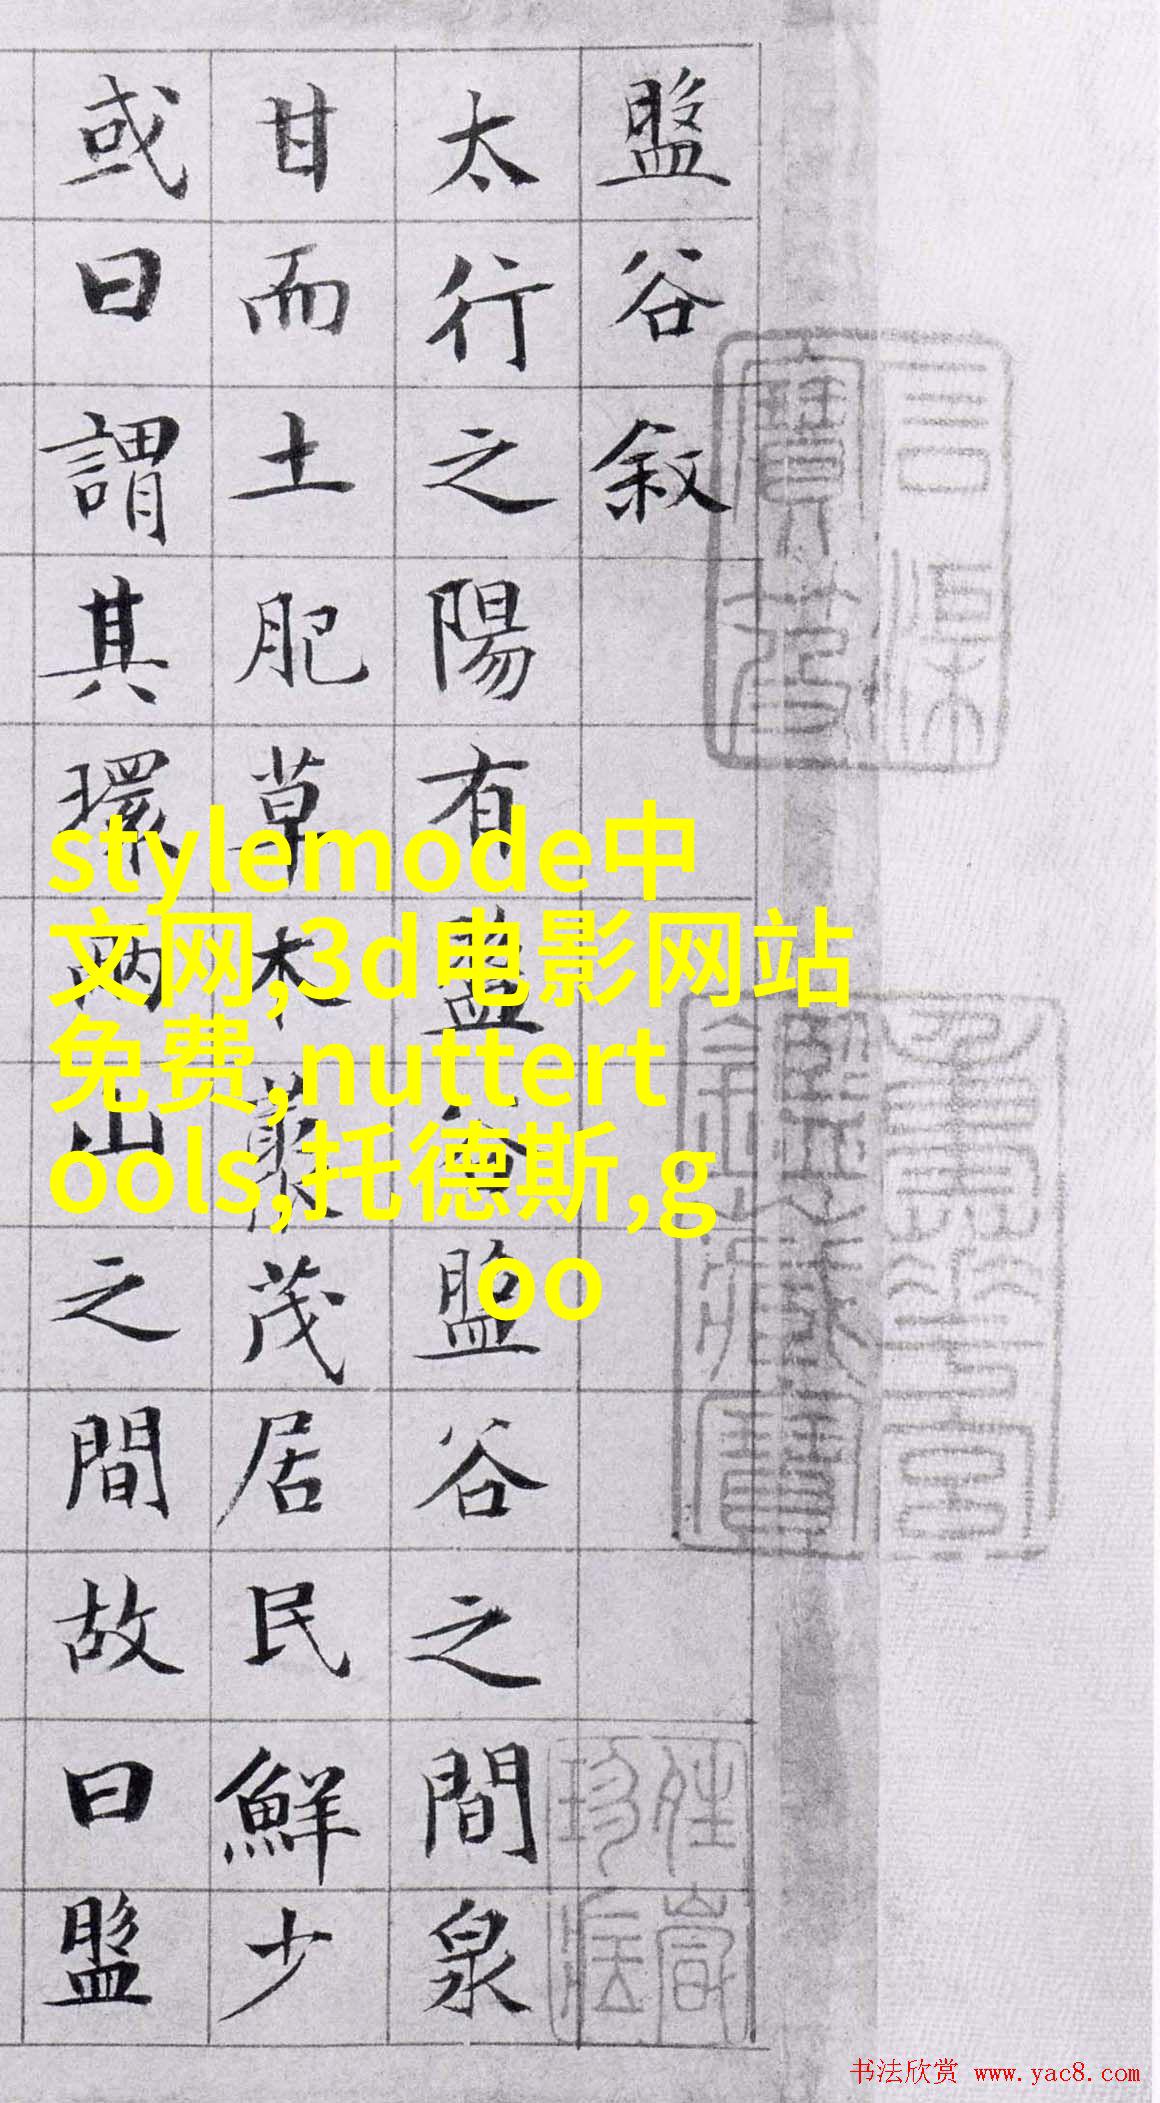 盤谷敘
太行之陽有盤谷盤谷之間泉
甘而土肥草木叢茂居民鮮少
或曰謂其環兩山之間故曰盤
stylemode中
文网,3d电影网站
免费,nuttert
ools,托德斯,g
oo
书法欣赏 www.yac8.com